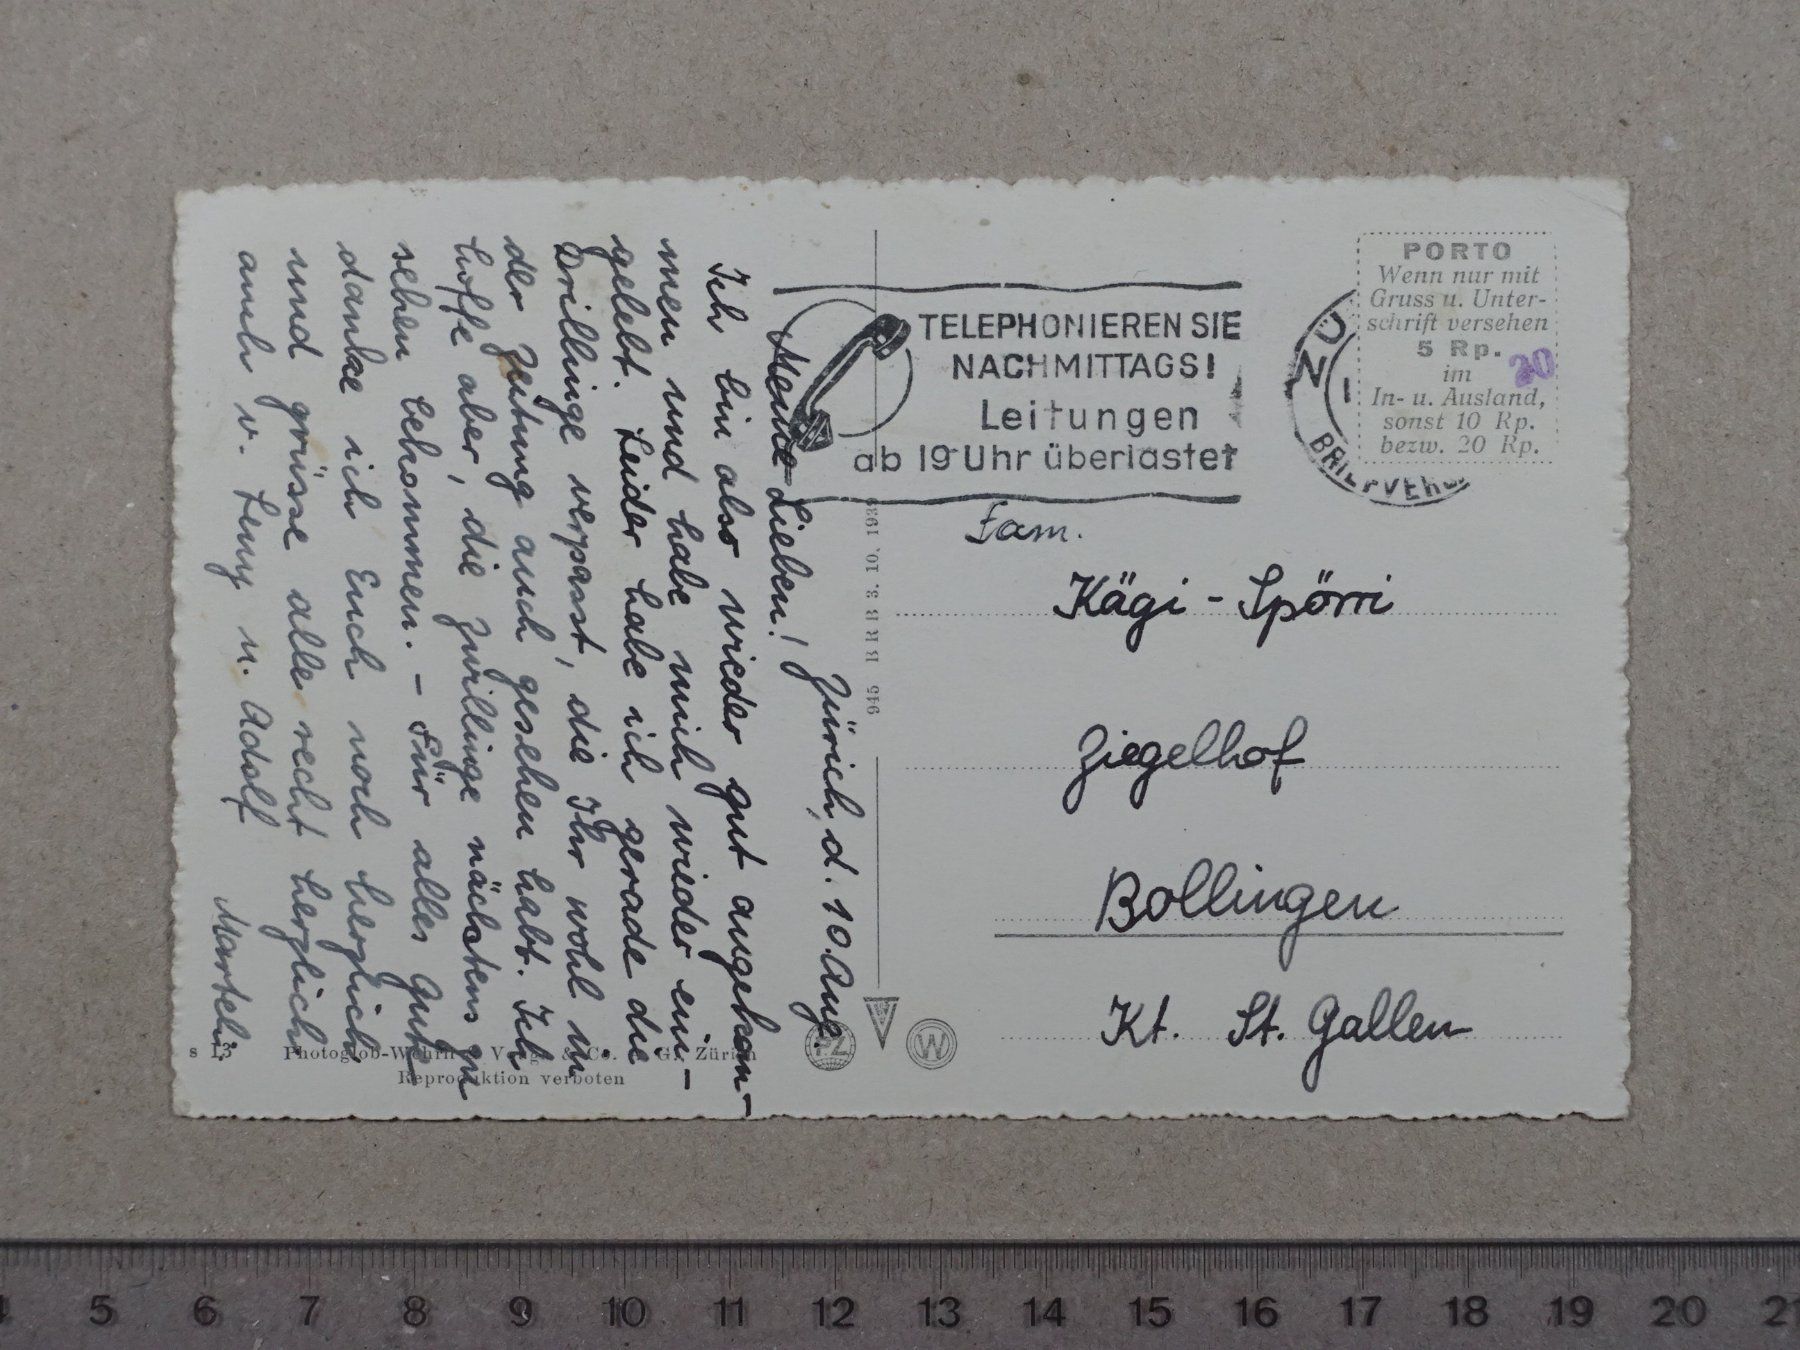 Zürich, d. 10. Aug.
Meine Lieben!
Ich bin also wieder gut angekom-
men und habe mich wieder ein-
gelebt. Leider habe ich gerade die
Drillinge verpasst, die Ihr wohl in
der Zeitung auch gesehen habt. Ich
hoffe aber, die Zwillinge nächstens zu
sehen bekommen. - Für alles Gute
danke ich Euch noch herzlich
und grüsse alle recht herzlich
auch v. Leny u. Adolf
Marteli.
TELEPHONIEREN SIE
NACHMITTAGS!
Leitungen
ab 19 Uhr überlastet
BRIEFVERS.
PORTO
Wenn nur mit
Gruss u. Unter-
schrift versehen
5 Rp.
im
In- u. Ausland,
sonst 10 Rp.
bezw. 20 Rp.
20
Fam.
Kägi - Spörri
Ziegelhof
Bollingen
Kt. St. Gallen
945 B R B 3. 10. 193
s 13 Photoglob-Wehrli & Co. Zürich
Reproduktion verboten
PZ
W
4 5 6 7 8 9 10 11 12 13 14 15 16 17 18 19 20 21